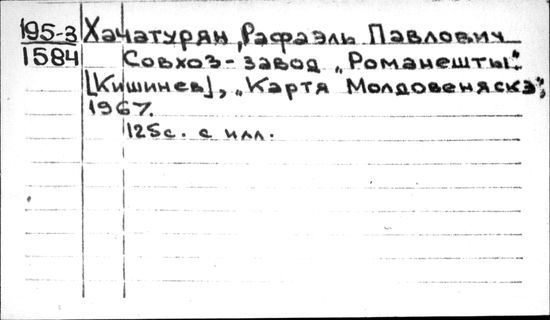 195-3 Хачатурян, Рафаэль Павлович
1584 Совхоз-завод „Романешты".
[Кишинев], „Картя Молдовеняскэ",
1967.
125с. с илл.